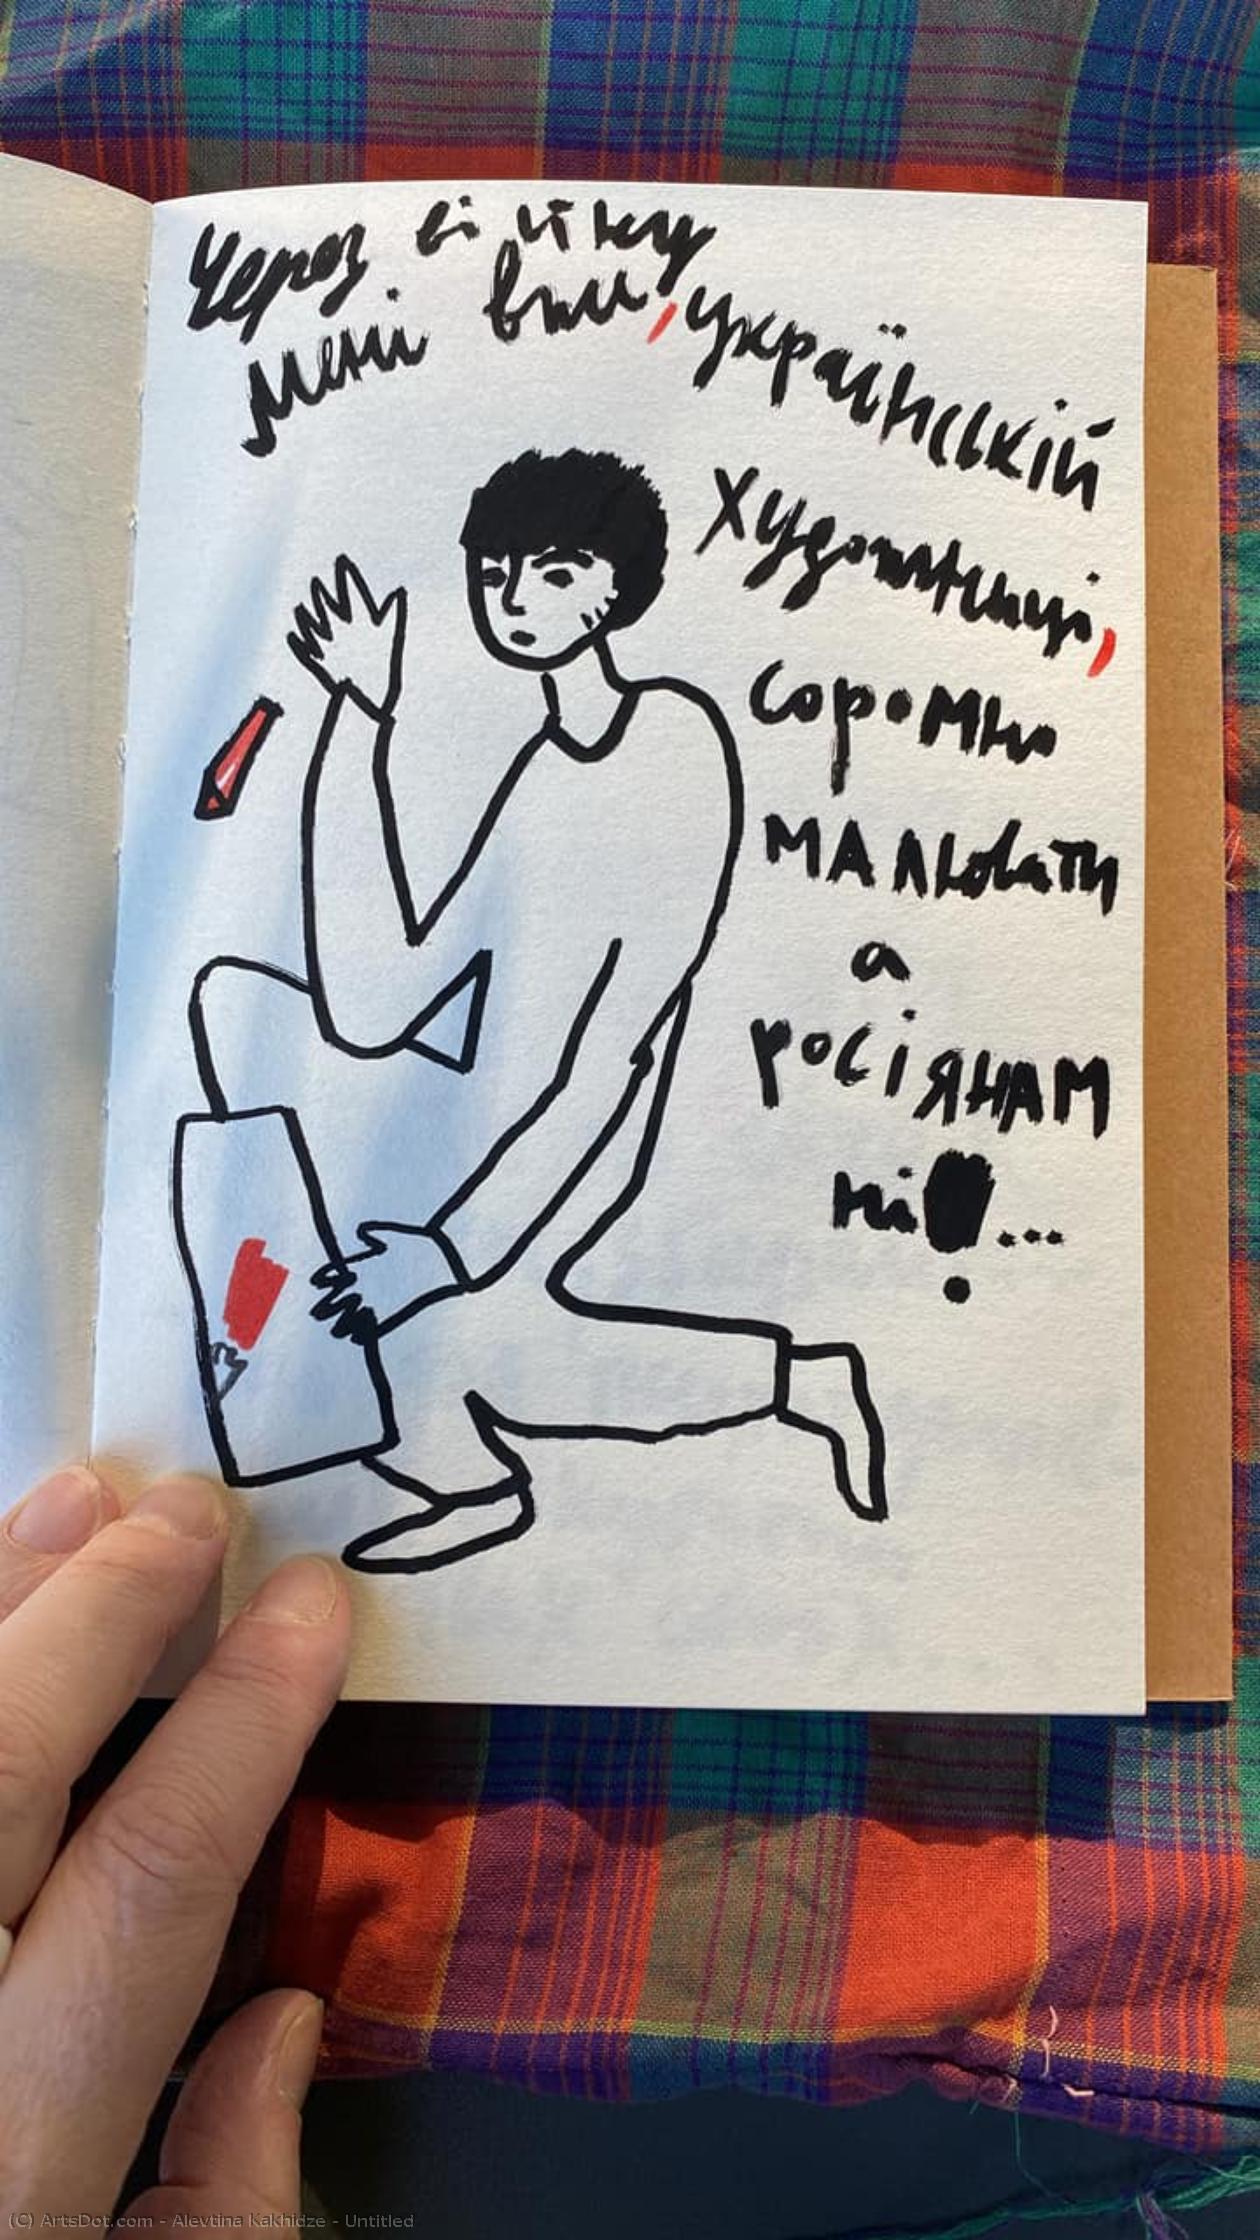 Через війну
мені вти, українській
художниці,
соромно
малювати
а
росіянам
ні!...
(C) ArtsDot.com - Alevtina Kakhidze - Untitled